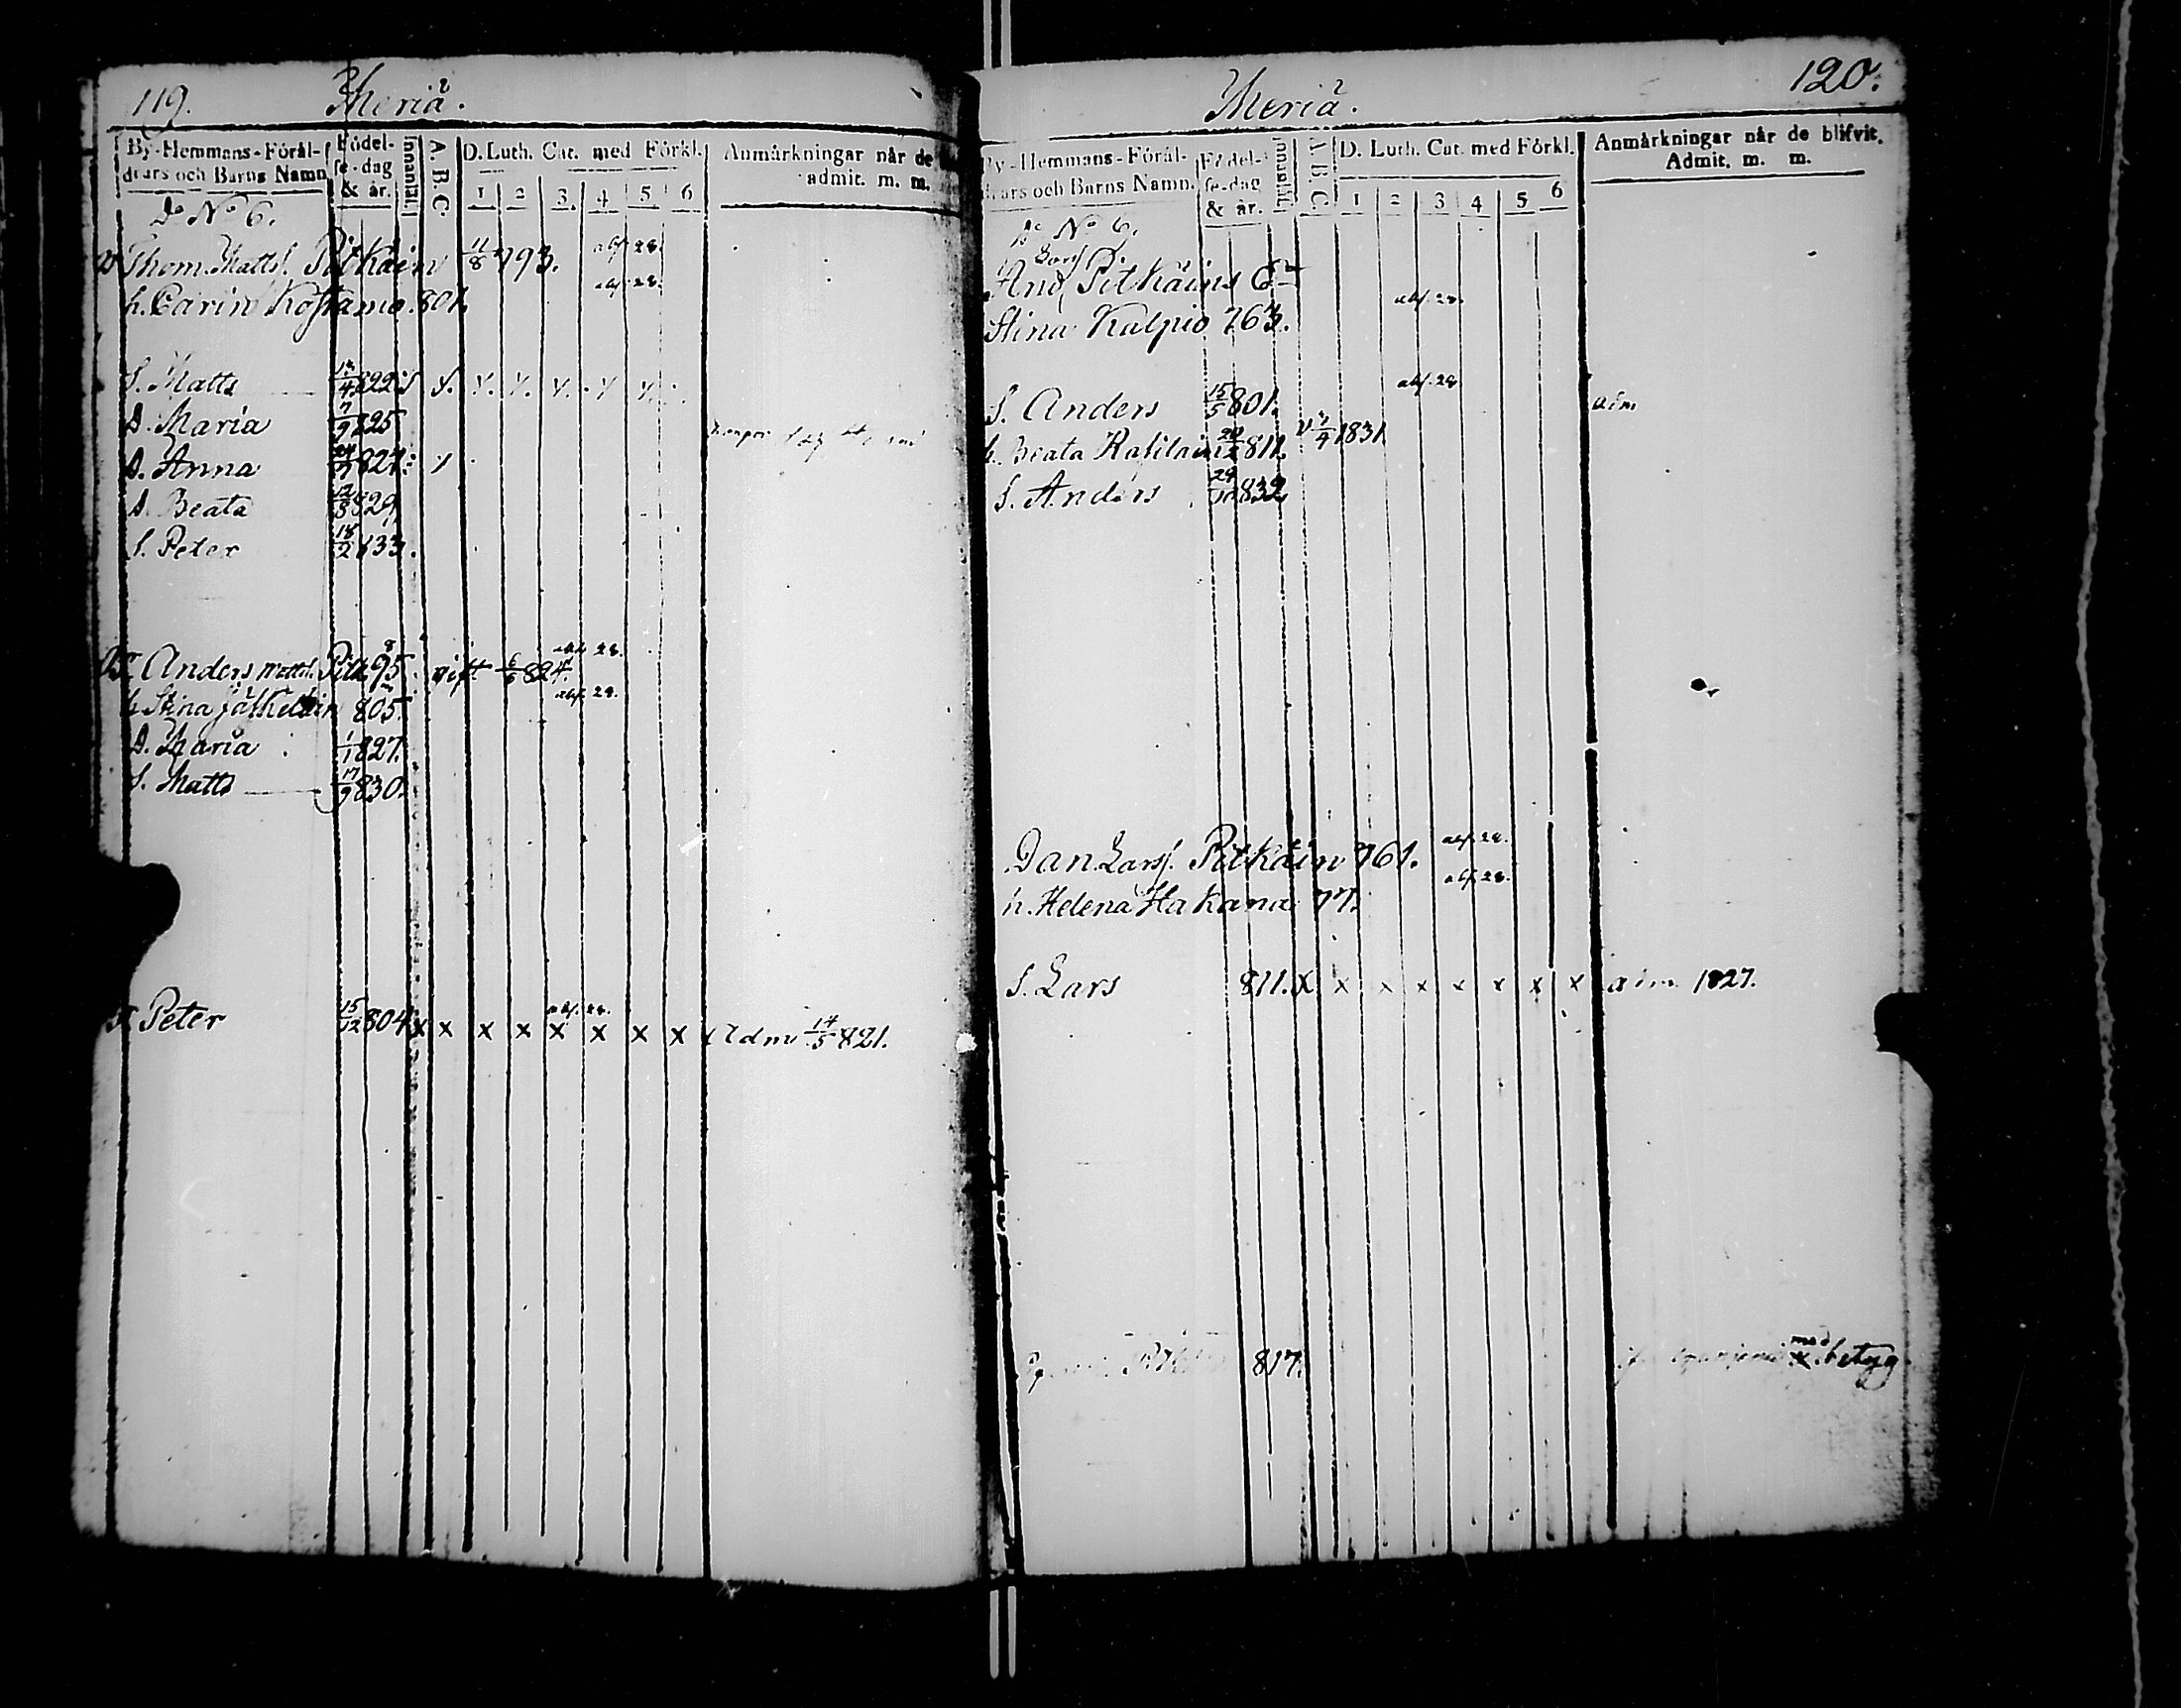 119. Meriä.
By-Hemmans-Föräl-
drars och Barns Namn
Födel-
se-dag
& år.
Innantill.
A. B. C.
D. Luth. Cat. med Förkl.
1 2 3. 4 5 6
Anmärkningar när de
admit. m. m.
Do No 6.
Thom. Matts. Pitkäin 11/8 793. abs. 28.
h. Carin Kostamo. 801. abs. 28.
S. Matts 822
D. Maria 7/9 825
D. Anna 827.
D. Beata 829
S. Peter 18/2 833.
Br Anders Matts. Pitk. 95. gift 824. abs. 28.
h Stina 805. abs. 28.
D. Maria 1/1 827.
S. Matts 17/9 830.
Peter 15/12 804 x x x x x x x x Adm 14/5 821.
abs. 28.
Meriä. 120.
By-Hemmans-Föräl-
drars och Barns Namn.
Födel-
se-dag
& år.
Innantill
A. B. C.
D. Luth. Cat. med Förkl.
1 2 3 4 5 6
Anmärkningar när de blifvit.
Admit. m. m.
Do No 6.
And. Pitkäins
Stina Kulpio 763. abs. 28.
S. Anders 15/5 801. abs. 28 adm
h. Beata 811. 1831
S. Anders 832
Dan Lars. Pitkäin 761. abs. 28.
h. Helena Hakana 77. abs. 28.
S. Lars 811. x x x x x x x x adm. 1827.
817. med betyg